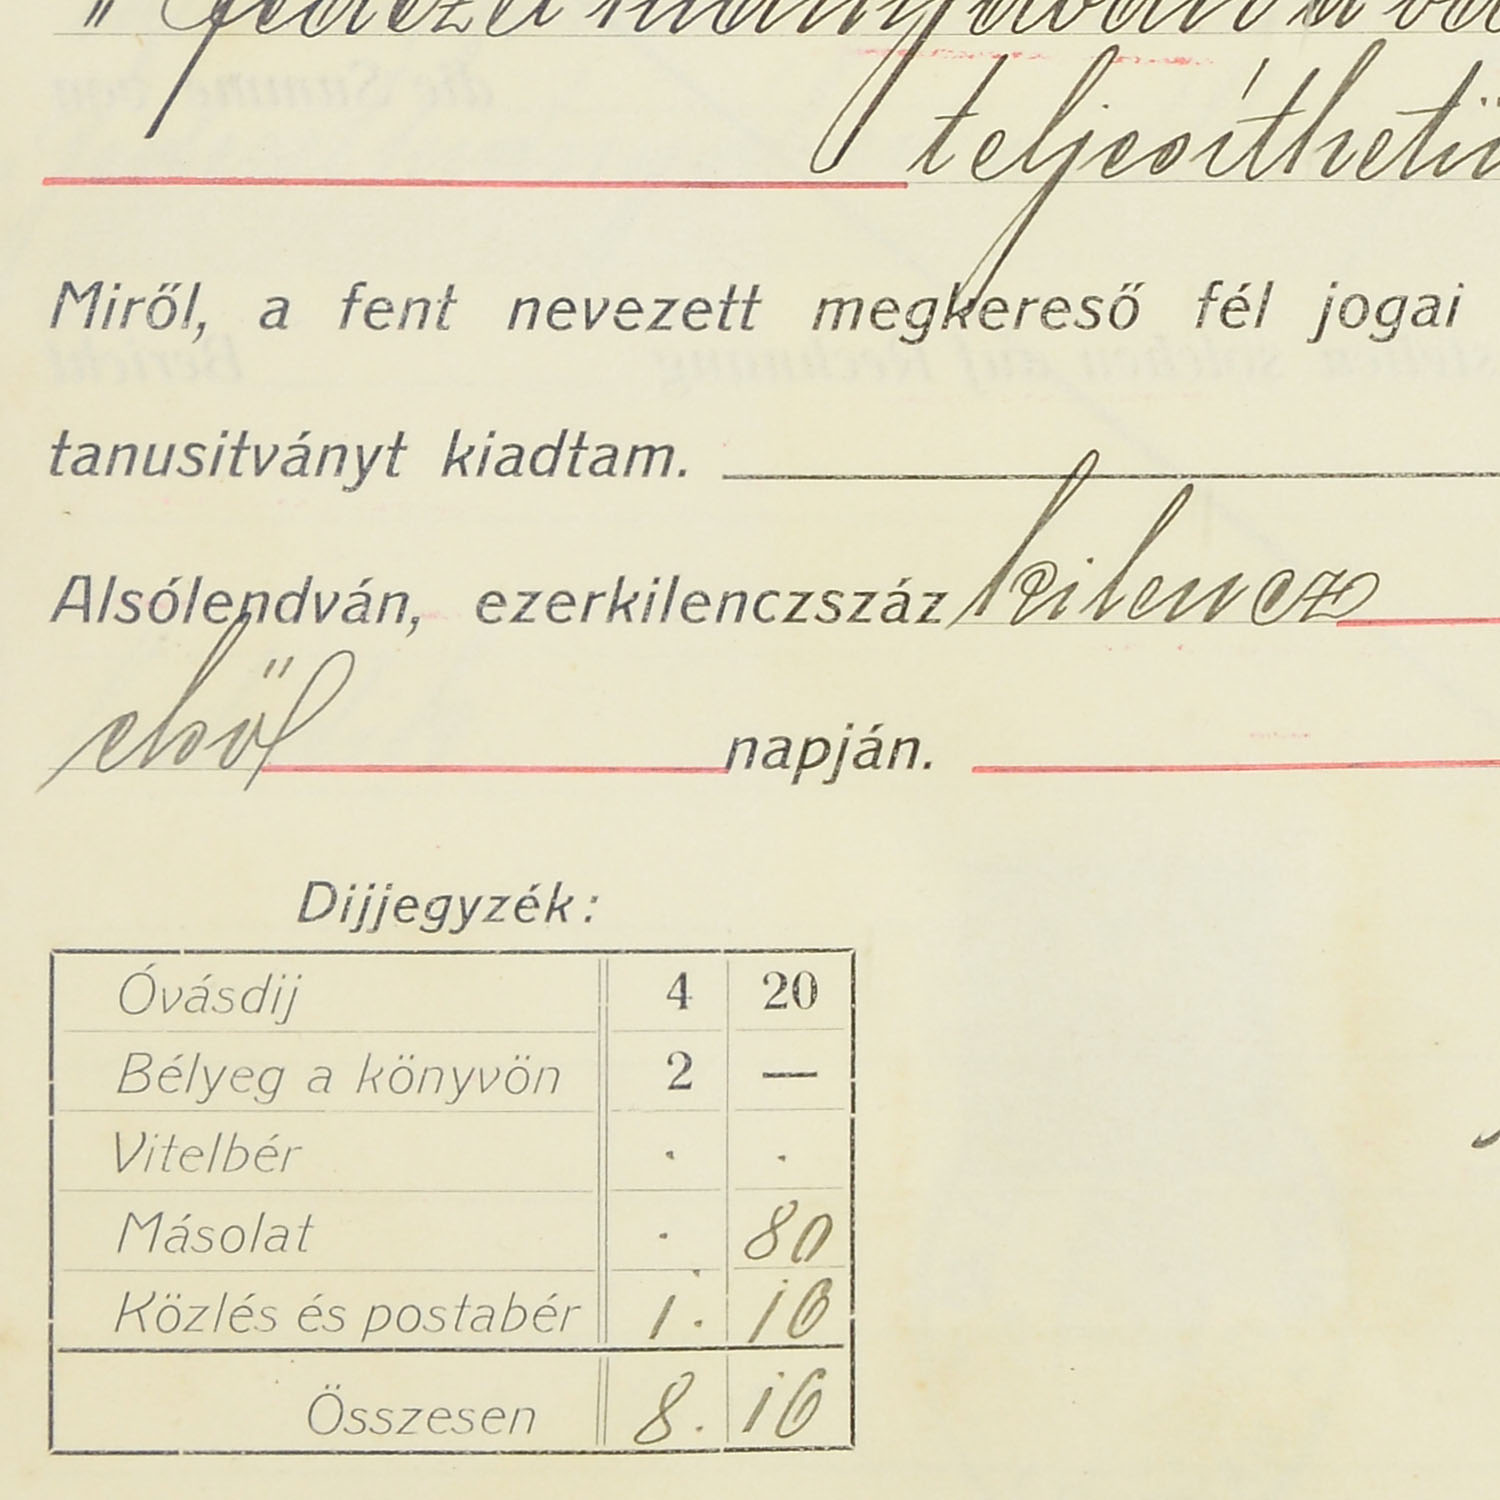 "Fedezet hiányában a
teljesíthető
Miről, a fent nevezett megkereső fél jogai
tanusitványt kiadtam.
Alsólendván, ezerkilenczszáz kilencz
első napján.
Dijjegyzék:
Óvásdij 4 20
Bélyeg a könyvön 2 —
Vitelbér . .
Másolat . 80
Közlés és postabér 1. 16
Összesen 8. 16